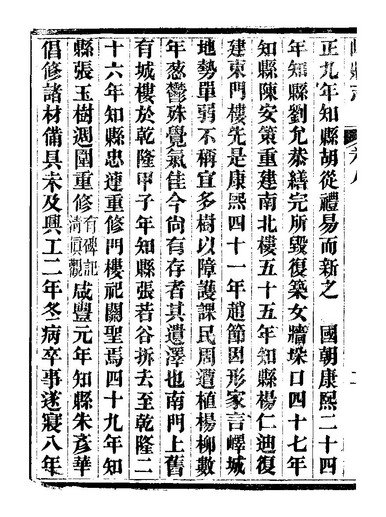 正九年知縣胡從禮易而新之 國朝康熙二十四
年知縣劉允恭繕完所毀復築女牆垛口四十七年
知縣陳安策重建南北樓五十五年知縣楊仁迪復
建東門樓先是康熙四十一年趙節因形家言嶧城
地勢單弱不稱宜多樹以障護課民周遭植楊柳數
年葱鬱殊覺氣佳今尙有存者其遺澤也南門上舊
有城樓於乾隆甲子年知縣張若谷拆去至乾隆二
十六年知縣忠連重修門樓祀關聖焉四十九年知
縣張玉樹週圍重修有碑記清眞觀咸豐元年知縣朱彥華
倡修諸材備具未及興工二年冬病卒事遂寢八年